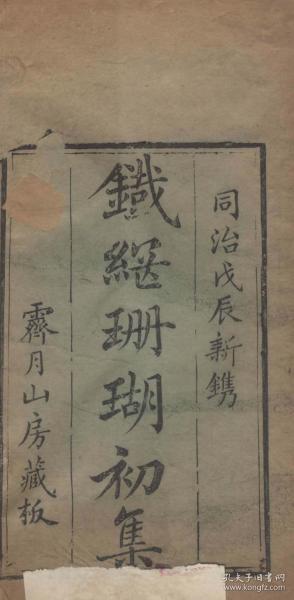 同治戊辰新鐫
鐵網珊瑚初集
霽月山房藏板
孔夫子旧书网